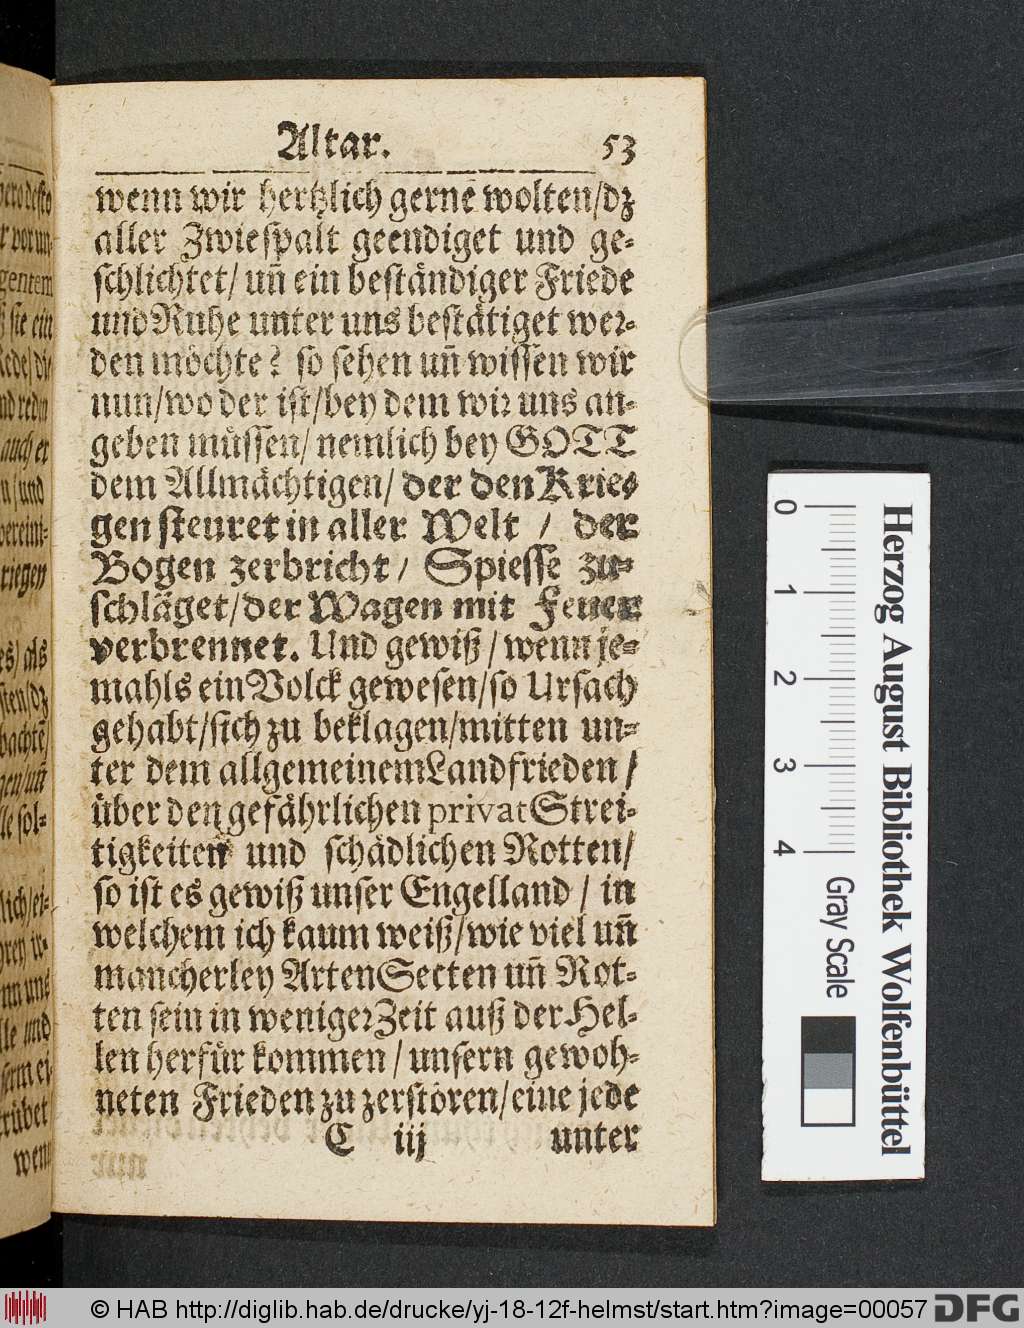 Altar. 53
wenn wir hertzlich gerne wolten/dz
aller Zwiespalt geendiget und ge-
schlichtet/ uñ ein beständiger Friede
und Ruhe unter uns bestätiget wer-
den möchte? so sehen uñ wissen wir
nun/wo der ist/bey dem wir uns an-
geben müssen/ nemlich bey GOTT
dem Allmächtigen/ der den Krie-
gen steuret in aller Welt / der
Bogen zerbricht/ Spiesse zu-
schläget/der Wagen mit Feuer
verbrennet. Und gewiß/wenn je-
mahls ein Volck gewesen/so Ursach
gehabt/sich zu beklagen/mitten un-
ter dem allgemeinem Landfrieden/
über den gefährlichen privat Strei-
tigkeiten und schädlichen Rotten/
so ist es gewiß unser Engelland / in
welchem ich kaum weiß/wie viel uñ
mancherley Arten Secten uñ Rot-
ten sein in weniger Zeit auß der Hel-
len herfür kommen / unsern gewoh-
neten Frieden zu zerstören/eine jede
C iij unter
0 1 2 3 4
Gray Scale
Herzog August Bibliothek Wolfenbüttel
© HAB http://diglib.hab.de/drucke/yj-18-12f-helmst/start.htm?image=00057 DFG